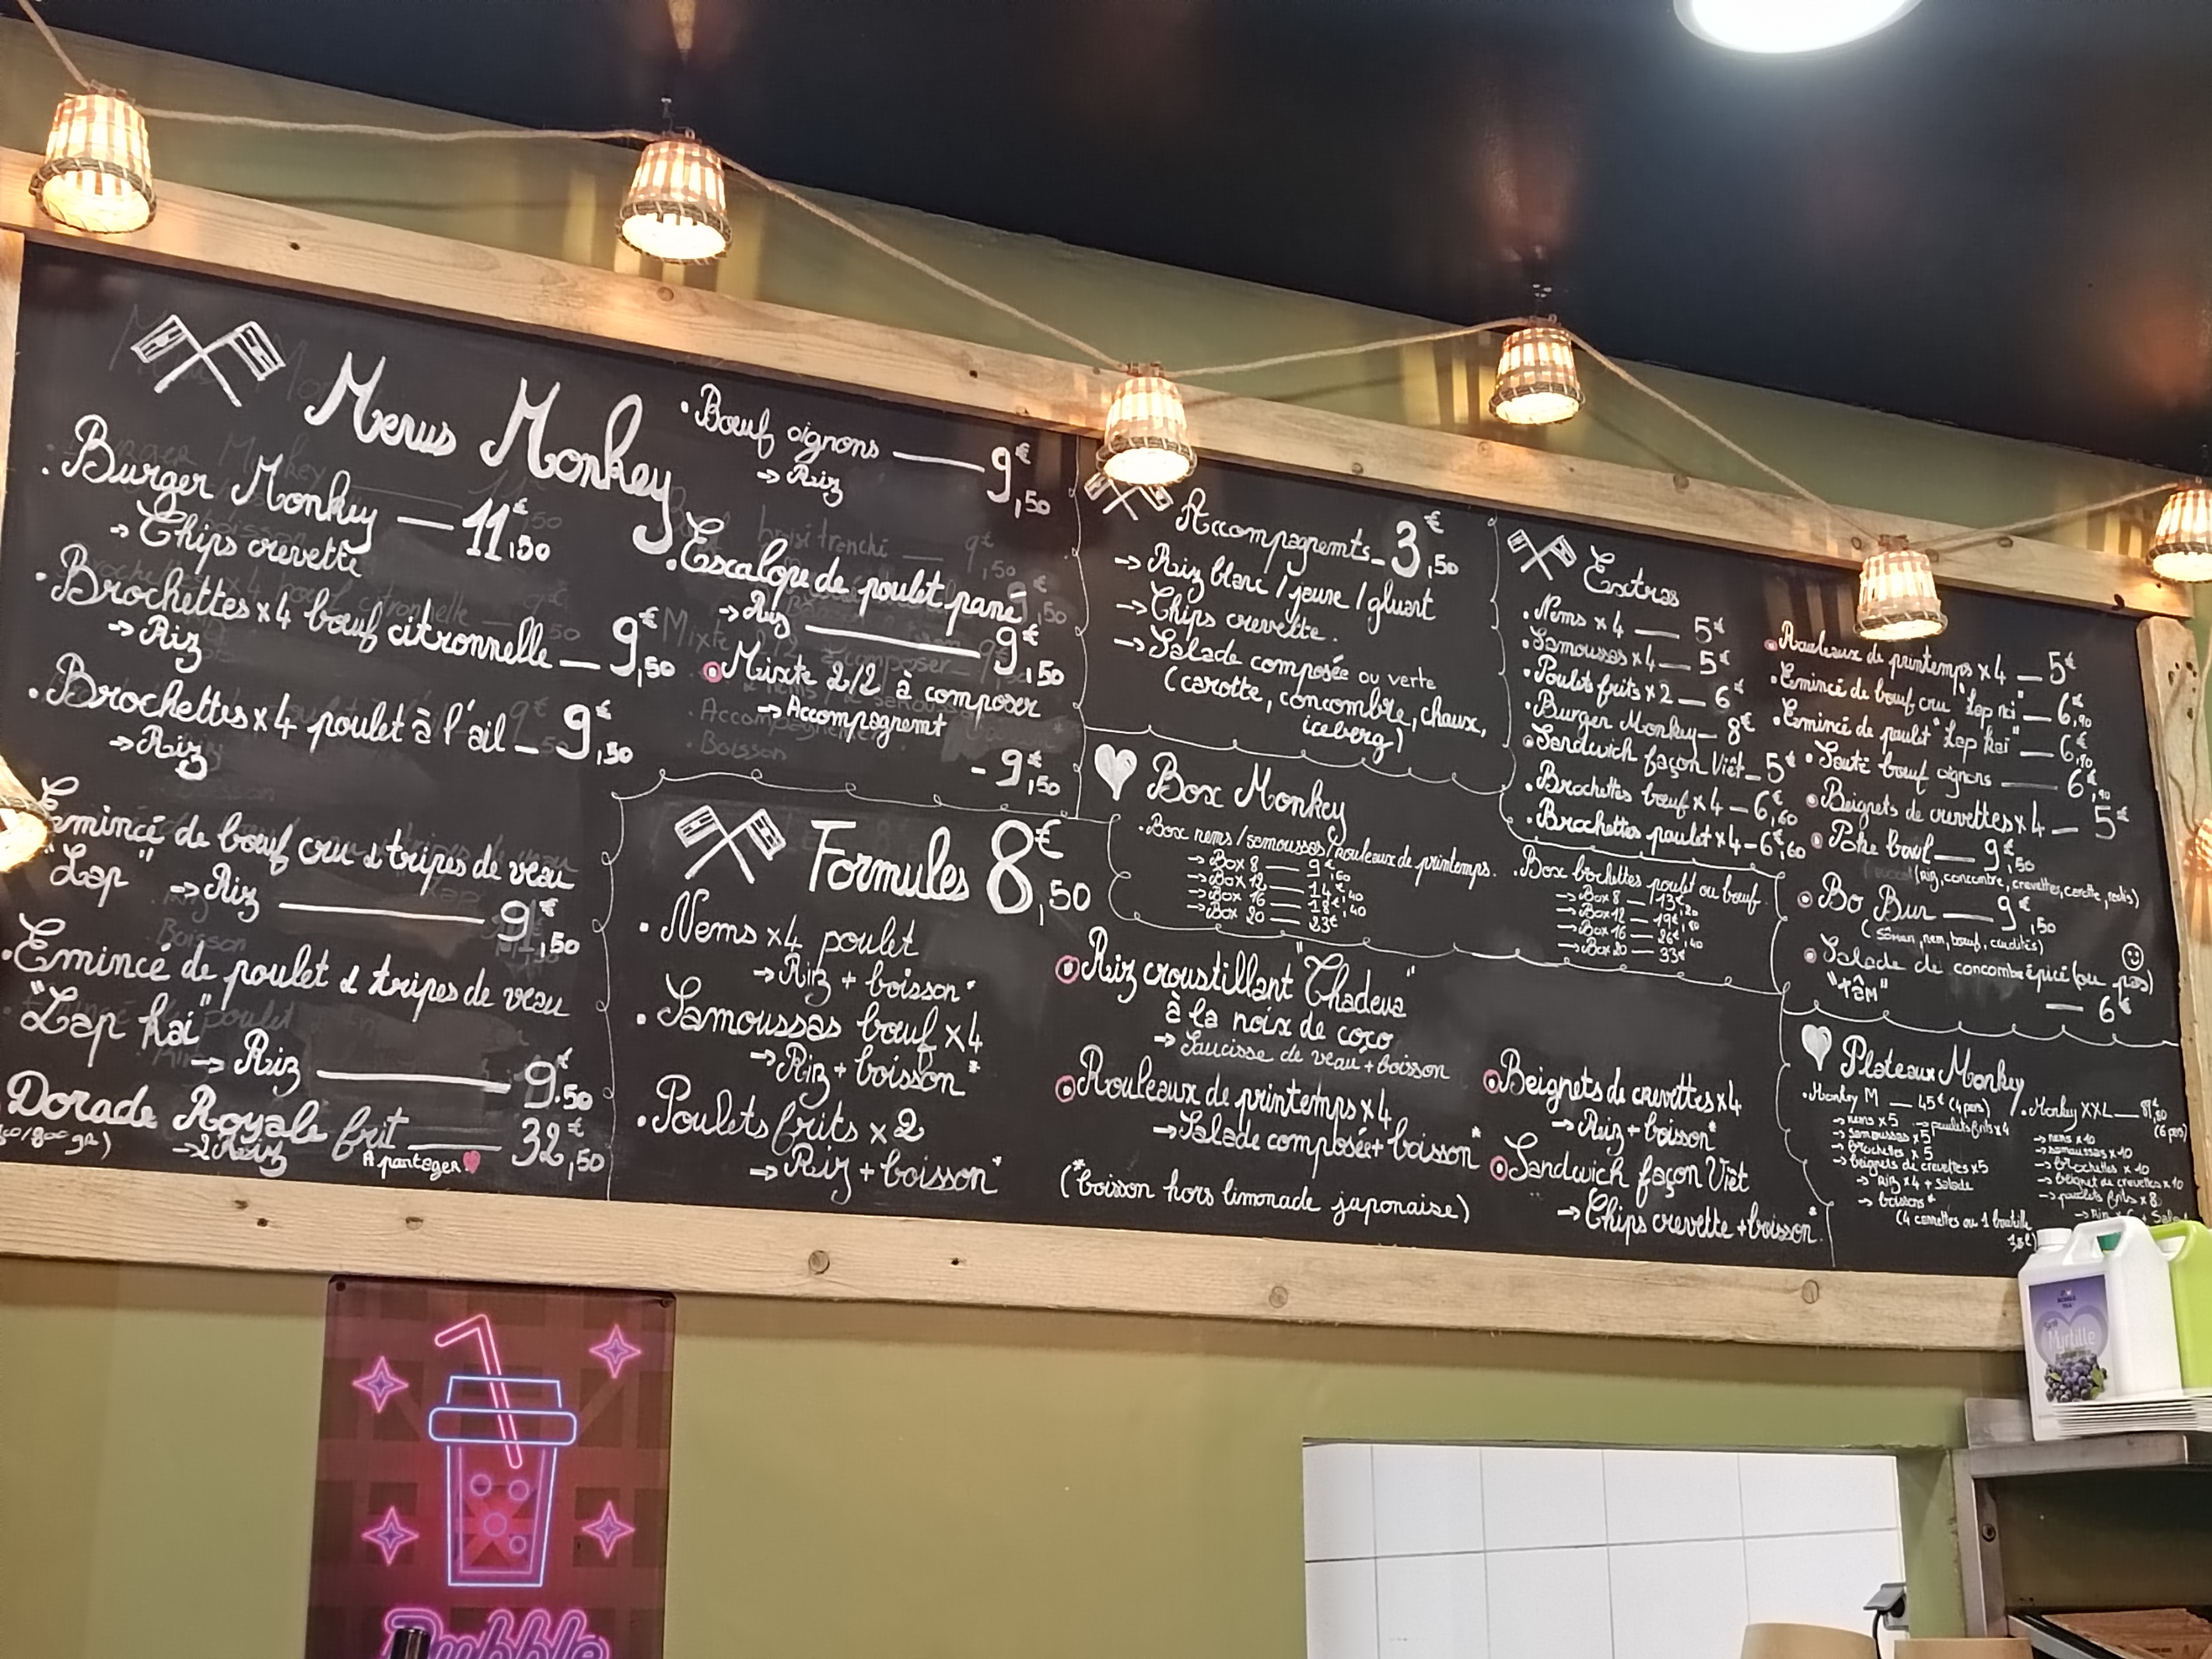 Menus Monkey
• Burger Monkey — 11€,50
→ Chips crevette
• Brochettes x4 bœuf citronnelle — 9€,50
→ Riz
• Brochettes x4 poulet à l'ail — 9€,50
→ Riz
Emincé de bœuf cru & tripes de veau
"Lap" → Riz — 9€,50
• Emincé de poulet & tripes de veau
"Lap kai" → Riz — 9€.50
Dorade Royale frit — 32€,50
→ 2 Riz
A partager
• Bœuf oignons — 9€,50
→ Riz
• Escalope de poulet pané
→ Riz — 9€,50
• Mixte 2/2 à composer
→ Accompagnemt
- 9€,50
Formules 8€,50
• Nems x4 poulet
→ Riz + boisson*
• Samoussas bœuf x4
→ Riz + boisson*
• Poulets frits x2
→ Riz + boisson*
Riz croustillant "Thadeua"
à la noix de coco
→ Saucisse de veau + boisson
Rouleaux de printemps x4
→ Salade composée + boisson*
(*boisson hors limonade japonaise)
Beignets de crevettes x4
→ Riz + boisson*
Sandwich façon Viêt
→ Chips crevette + boisson*
Accompagnemts - 3€,50
→ Riz blanc / jaune / gluant
→ Chips crevette.
→ Salade composée ou verte
(carotte, concombre, chaux,
iceberg)
Box Monkey
• Box nems / samoussas / rouleaux de printemps.
→ Box 8 — 9€,60
→ Box 12 — 14€,40
→ Box 16 — 18€,40
→ Box 20 — 23€
• Box brochettes poulet ou bœuf
→ Box 8 — 13€,20
→ Box 12 — 19€,80
→ Box 16 — 26€,40
→ Box 20 — 33€
Extras
• Nems x4 — 5€
• Samoussas x4 — 5€
• Poulets frits x2 — 6€
• Burger Monkey — 8€
• Sandwich façon Viêt — 5€
• Brochettes bœuf x4 — 6€,60
• Brochettes poulet x4 — 6€,60
• Rouleaux de printemps x4 — 5€
• Emincé de bœuf cru "Lap" — 6€,90
• Emincé de poulet "Lap kai" — 6€,90
• Sauté bœuf oignons — 6€,90
• Beignets de crevettes x4 — 5€
• Poke bowl — 9€,50
(Riz, concombre, crevettes, carotte, radis)
• Bo Bun — 9€,50
nem, bœuf, crudités)
• Salade de concombre épicé (ou pas)
"TÂM" — 6€
Plateaux Monkey
• Monkey M — 45€ (4 pers)
→ nems x5 → poulets frits x4
→ samoussas x5
→ brochettes x5
→ beignets de crevettes x5
→ Riz x4 + salade
→ boissons*
(4 canettes ou 1 bouteille
• Monkey XXL — 
(6 pers)
→ nems x10
→ samoussas x10
→ brochettes x10
→ beignet de crevettes x10
→ poulets frits x8
Myrtille
Bubble